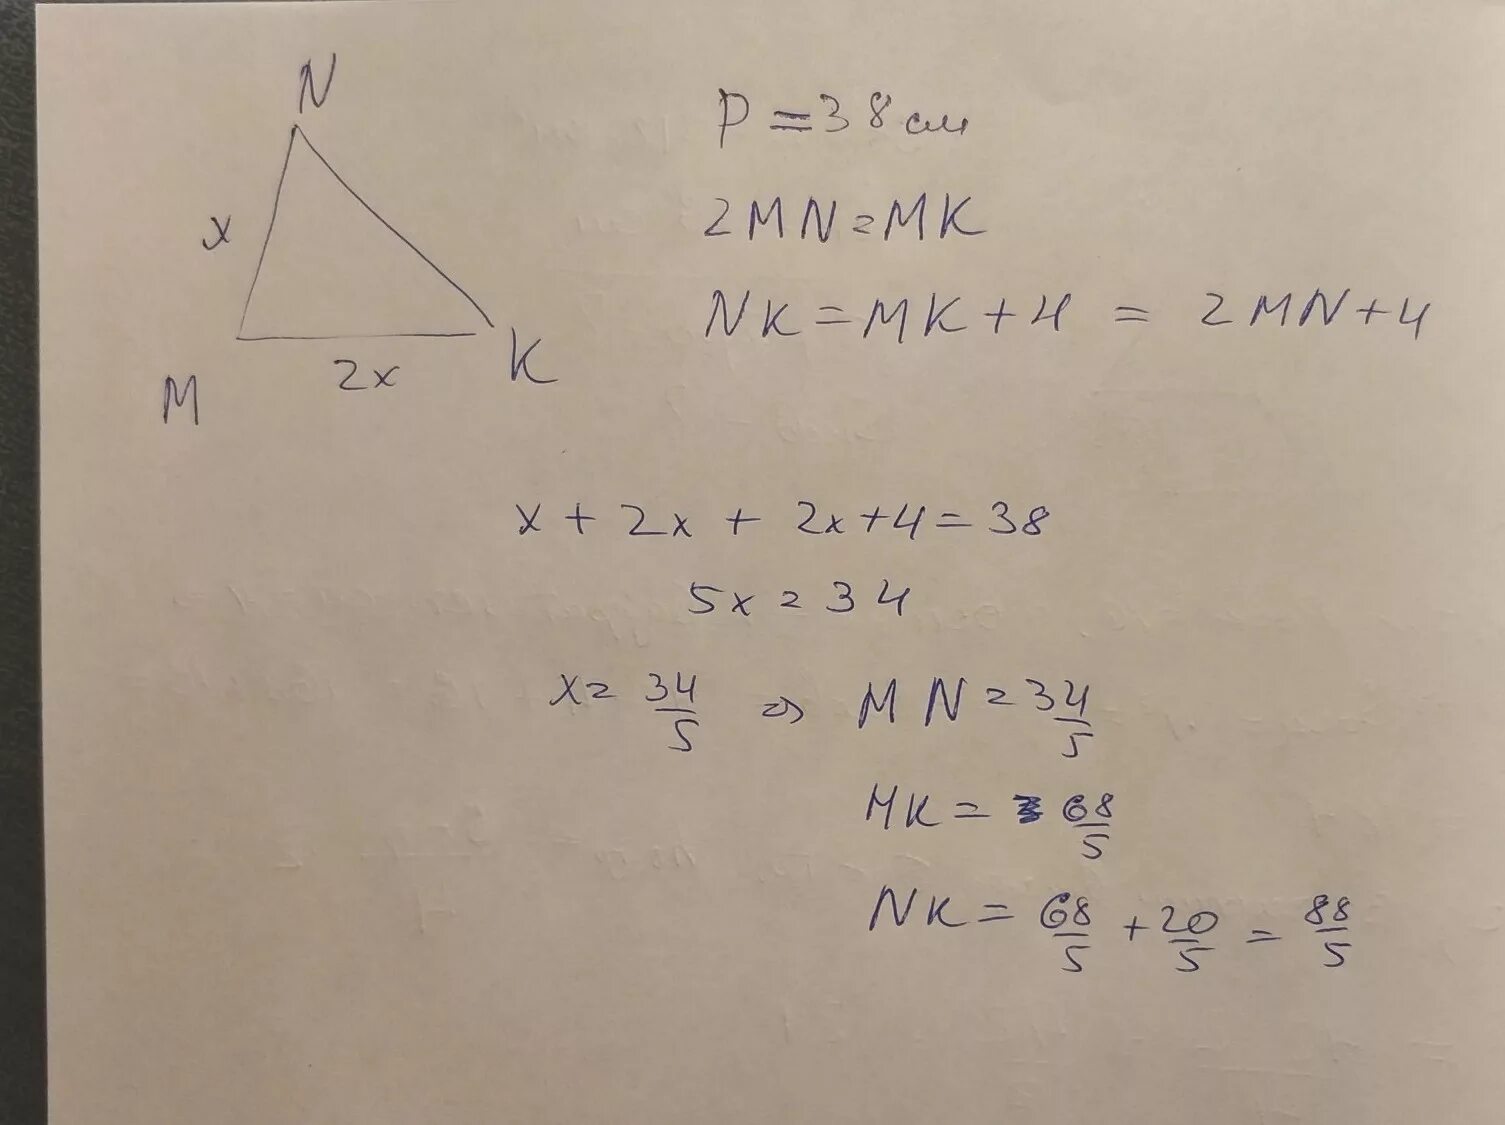 N
P = 38 см
x
2MN = MK
NK = MK + 4 = 2MN + 4
M
2x
K
x + 2x + 2x + 4 = 38
5x = 34
x = 34/5 => MN = 34/5
MK = 68/5
NK = 68/5 + 20/5 = 88/5